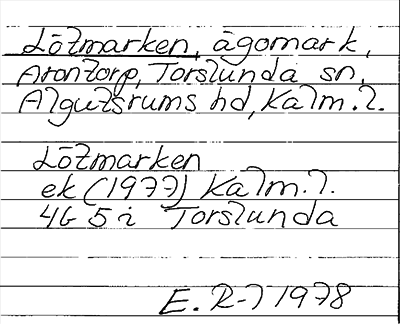 Lötmarken, ägomark,
Arontorp, Torslunda sn,
Algutsrums hd, Kalm.l.
Lötmarken
ek (1977) Kalm.l.
4G 5i Torslunda
E. R-7 1978